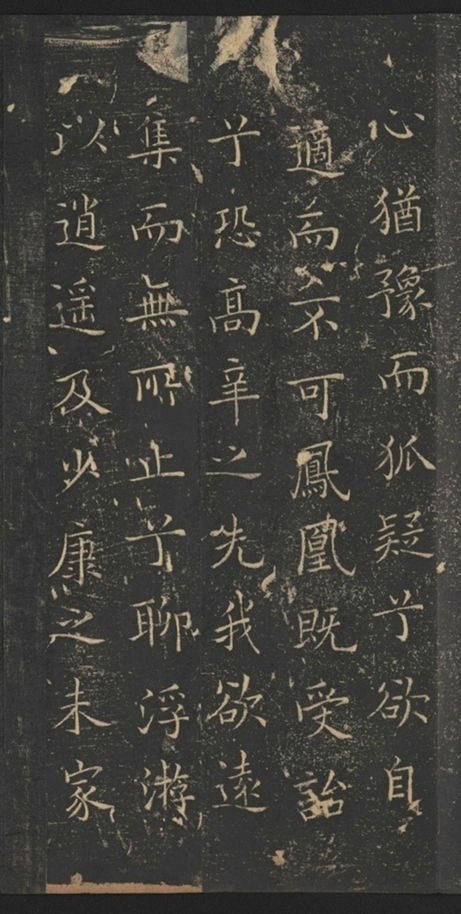 心猶豫而狐疑兮欲自
適而不可鳳凰既受詒
兮恐高辛之先我欲遠
集而無所止兮聊浮遊
以逍遥及少康之未家